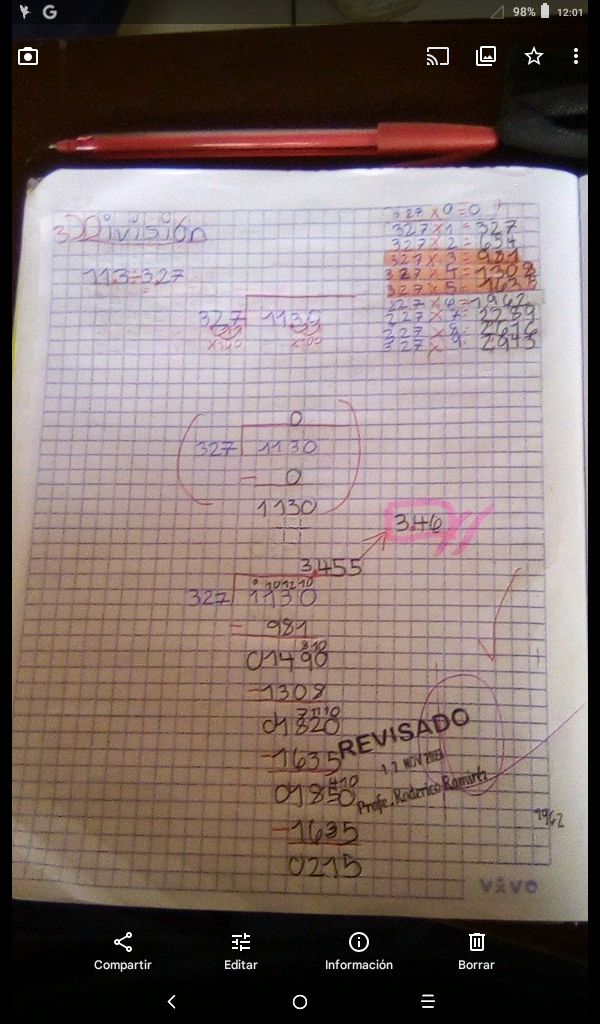 98% 12:01
3) División
327 x 0 = 0
327 x 1 = 327
327 x 2 = 654
327 x 3 = 981
327 x 4 = 1308
327 x 5 = 1635
327 x 6 = 1962
327 x 7 = 2289
327 x 8 = 2616
327 x 9 = 2943
11.3÷3.27
327 1130
x100 x100
0
327 1130
- 0
1130
3.46
3.455
327 1130
- 981
01490
-1308
01820
-1635
01850
-1635
0215
REVISADO
NOV
Profe. Roderico
1962
vivo
Compartir
Editar
Información
Borrar